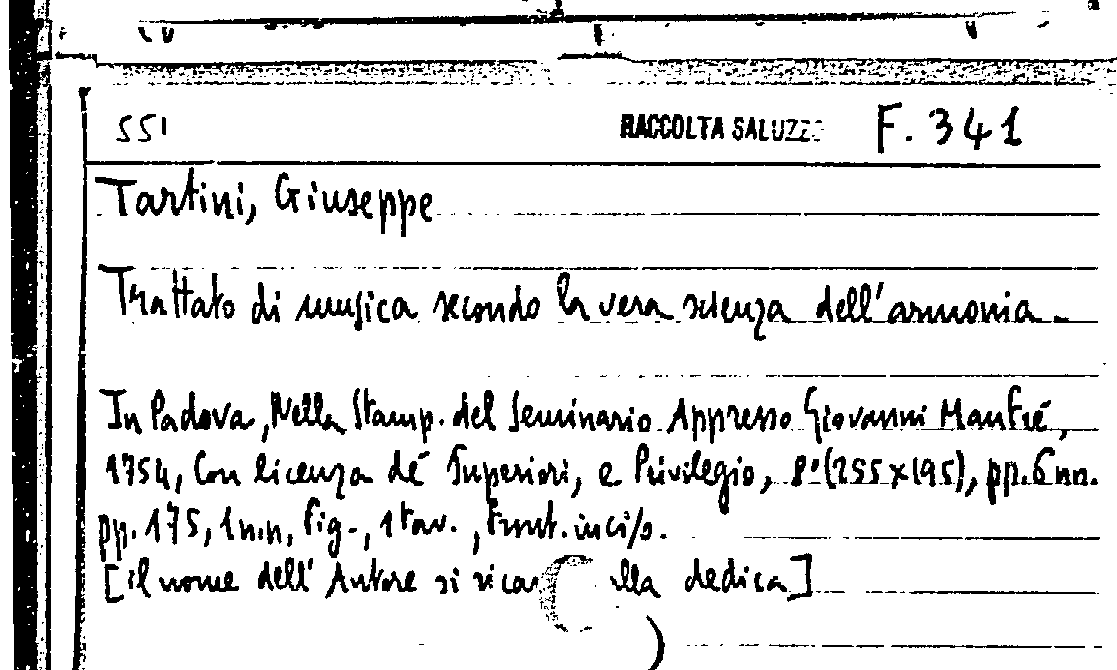 551 RACCOLTA SALUZZO F. 341
Tartini, Giuseppe
Trattato di musica secondo la vera scienza dell'armonia.
In Padova, Nella Stamp. del Seminario Appresso Giovanni Manfrè,
1754, Con licenza de' Superiori, e Privilegio, 8º (255x195), pp. 6 nn.
pp. 175, 1 n.n, fig., 1 tav., front. inciso.
[il nome dell'Autore si dedica]